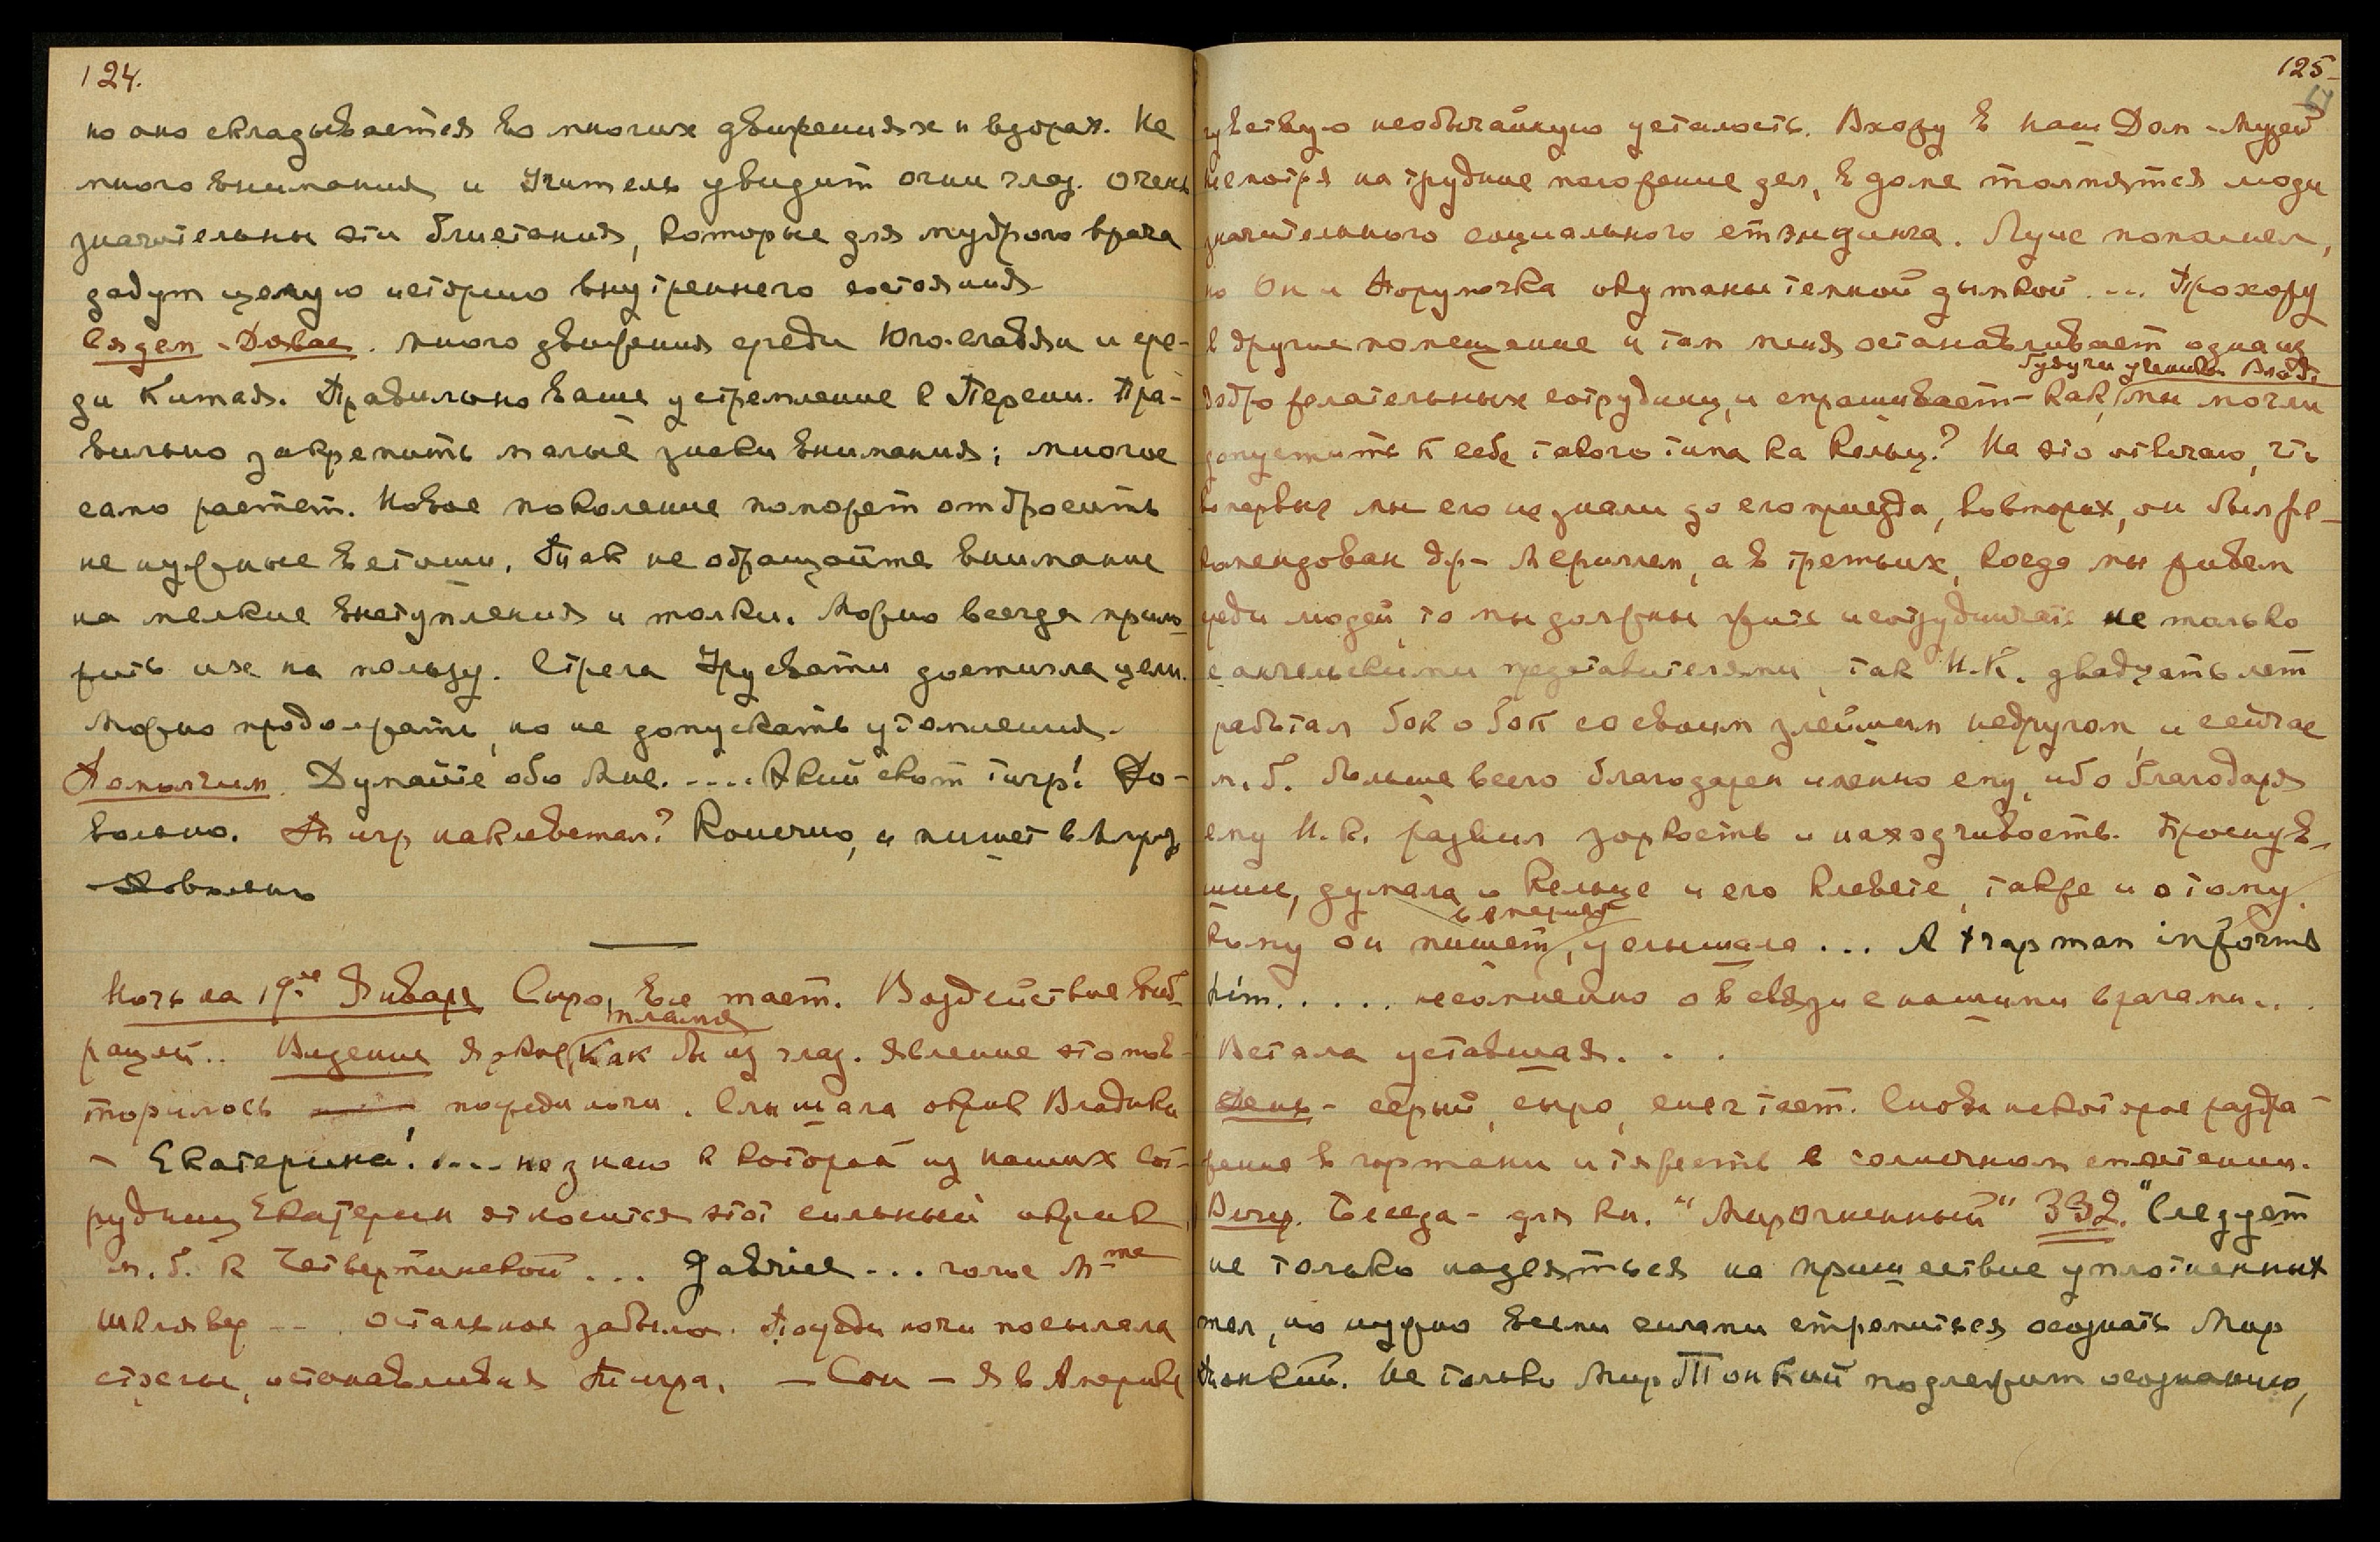 124.
но оно складывается во многих движениях и взорах. Не
много внимания и Учитель увидит огни глаз. Очень
значительны эти блистания, которые для мудрого врача
дадут целую историю внутреннего состояния.
много движения среди Юго-славян и сре-
ди Китая. Правильно ваше устремление к Персии. Пра-
вильно закрепить малые знаки внимания; многое
само растет. Новое поколение поможет отбросить
не нужные ветоши. Так не обращайте внимание
на мелкие выступления и толки. Можно всегда прило-
жить их на пользу. Стрела Урусвати достигла цели.
Можно продолжать, но не допускать утомления.
Думайте обо Мне. .... Твой скот тигр! До-
вольно. Тигр наклеветал? Конечно, и пишет в
Довольно
Ночь на 19-ое Января Сыро, все тает. Воздействие виб-
раций.. Видение яркое, как бы пламя из глаз. Явление это пов-
торилось посреди ночи. Слышала окрик Владыки
- Екатерина! .... не знаю к которой из наших сот-
рудниц Екатерин относится этот сильный окрик,
м.б. к Четвертинской ... Gabriel ... голос М-me
Шклявер ... остальное забыла. Посреди ночи посылала
стрелы, останавливая Тигра. — Сон — Я в Америке
125
чувствую необычайную усталость. Вхожу в наш Дом-Музей
несмотря на трудное положение дел, в доме толпятся люди
значительного социального стэндинга. Луис пополнел,
но Он и Порумочка окутаны темной дымкой ... Прохожу
в другие помещение и там меня останавливает одна из
будучи учениками Влад.
доброжелательных сотрудниц, и спрашивает - как, мы могли
допустить к себе такого типа как Кельц? На это отвечаю, что
во первых мы его не знали до его приезда, во вторых, он был ре-
комендован др- Мериллем, а в третьих, когда мы живем
среди людей, то мы должны жить и сотрудничать не только
с ангельскими представителями, так Н.К. двадцать лет
работал бок о бок со своим злейшим недругом, и сейчас
м.б. больше всего благодарен именно ему, ибо благодаря
ему Н.К. развил зоркость и находчивость. Проснув-
шись, думала о Кельце и его клевете, также и о тому,
кому он пишет, услышала ... A trap man informs
him..... несомненно о в связи с нашими врагами...
Встала уставшая. . .
День - серый, сыро, снег тает. Снова некоторое раздра-
жение в гортани и тяжесть в солнечном сплетении.
Вечер. Беседа - для кн. "Мир Огненный" 332. "Следует
не только надеяться на пришествие уплотненных
тел, но нужно всеми силами стремиться осознать Мир
Тонкий. Не только Мир Тонкий подлежит осознанию,